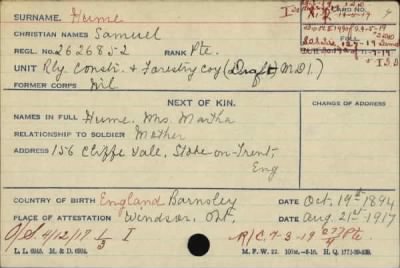 SURNAME. Hume
CARD NO.
CHRISTIAN NAMES Samuel
REGL. NO. 2626852 RANK Pte.
FOLL.
UNIT Rly Constr. & Forestry Coy (Draft M.D.1.)
FORMER CORPS Nil
NEXT OF KIN.
CHANGE OF ADDRESS
NAMES IN FULL Hume, Mrs. Martha
RELATIONSHIP TO SOLDIER Mother
ADDRESS 156 Cliffe Vale, Stoke-on-Trent,
Eng
COUNTRY OF BIRTH England Barnsley DATE Oct. 19th 1894
PLACE OF ATTESTATION Windsor, Ont. DATE Aug. 21st 1917
O/S 4/12/17 1/3 I
R/C, 7-3-19
L. L. 6945. M. & D. 6994.
M. F. W. 22.